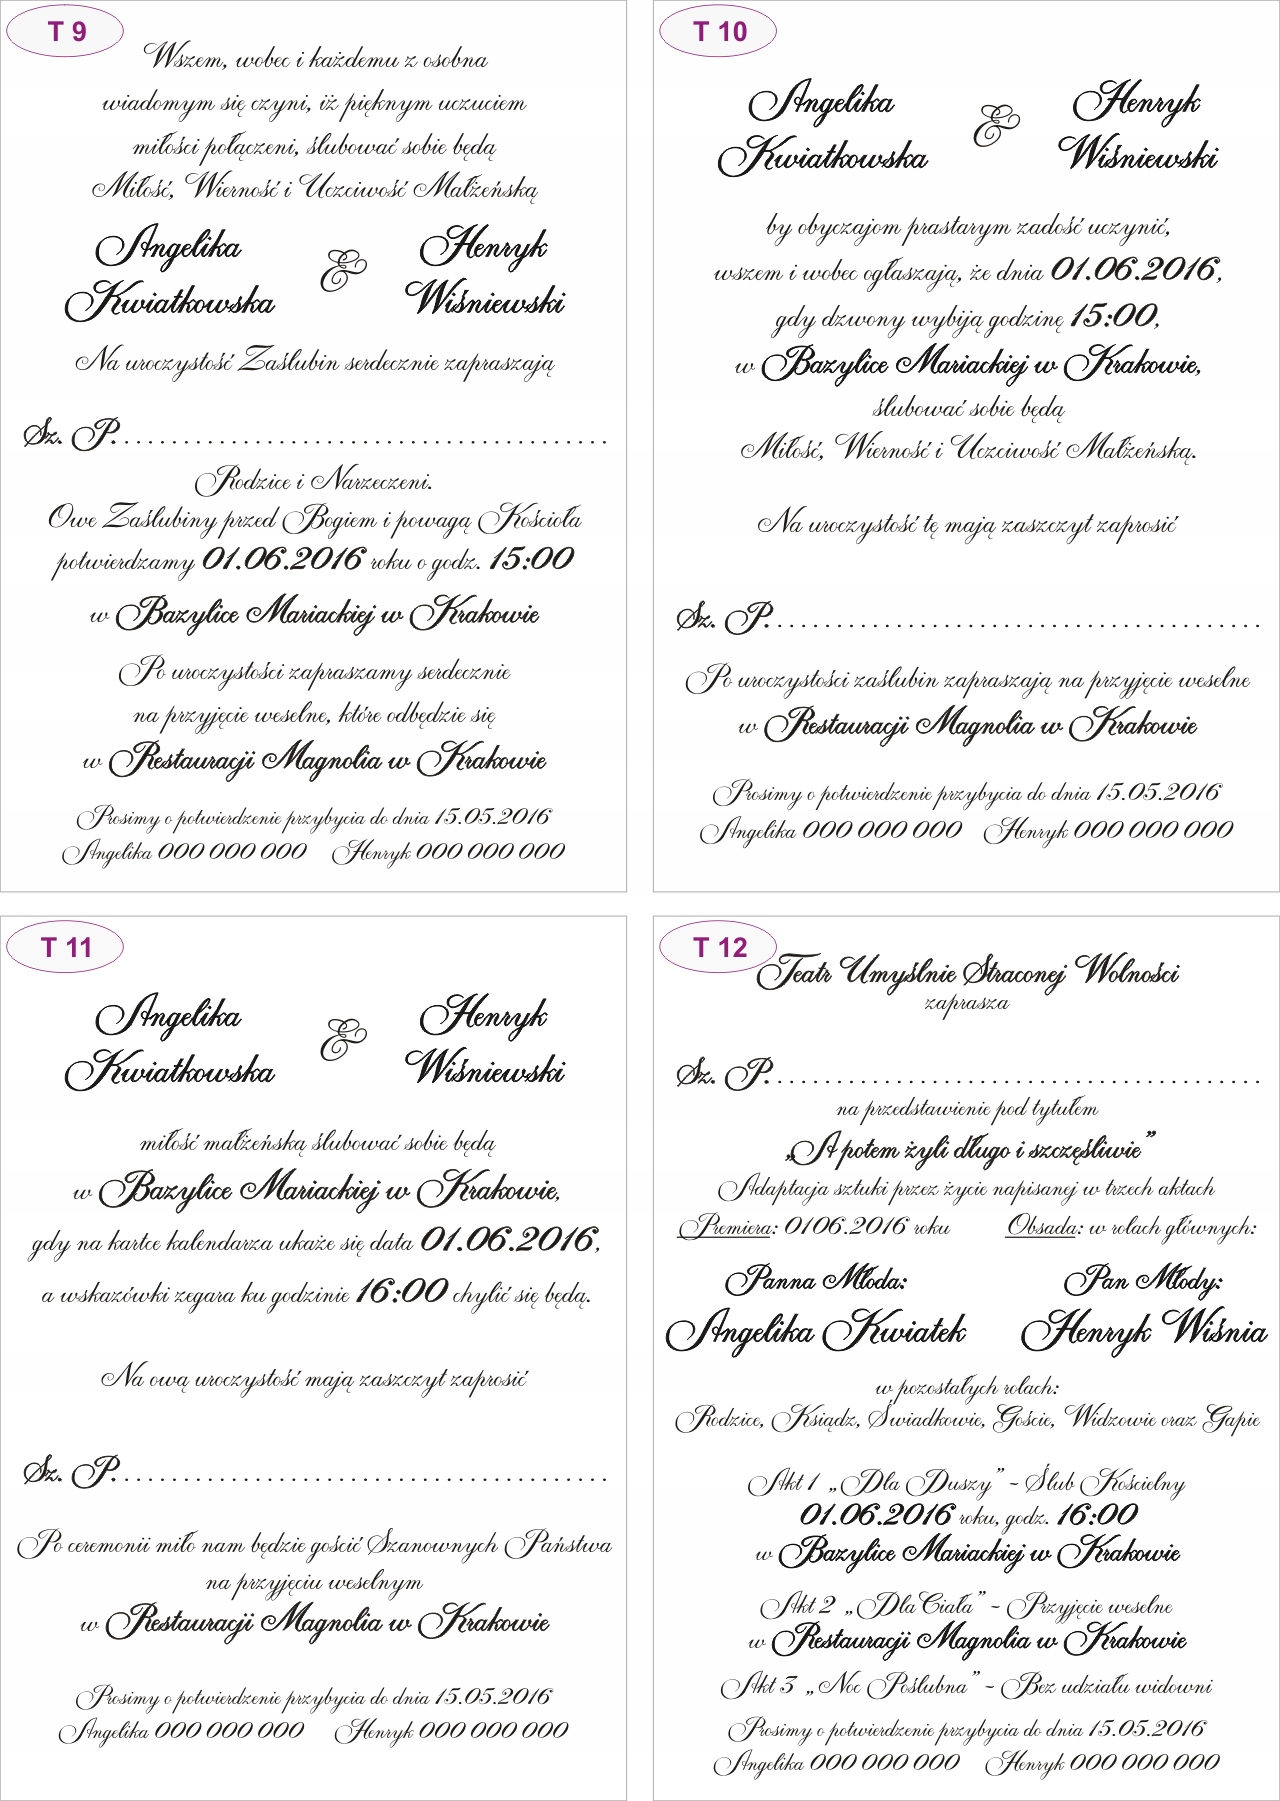 T 9
Wszem, wobec i każdemu z osobna
wiadomym się czyni, iż pięknym uczuciem
miłości połączeni, ślubować sobie będą
Miłość, Wierność i Uczciwość Małżeńską
Angelika
Kwiatkowska
&
Henryk
Wiśniewski
Na uroczystość Zaślubin serdecznie zapraszają
Sz. P. . . . . . . . . . . . . . . . . . . . . . . . . . . . . . . . . . . . . . . . .
Rodzice i Narzeczeni.
Owe Zaślubiny przed Bogiem i powagą Kościoła
potwierdzamy 01.06.2016 roku o godz. 15:00
w Bazylice Mariackiej w Krakowie
Po uroczystości zapraszamy serdecznie
na przyjęcie weselne, które odbędzie się
w Restauracji Magnolia w Krakowie
Prosimy o potwierdzenie przybycia do dnia 15.05.2016
Angelika 000 000 000 Henryk 000 000 000
T 10
Angelika
Kwiatkowska
&
Henryk
Wiśniewski
by obyczajom prastarym zadość uczynić,
wszem i wobec ogłaszają, że dnia 01.06.2016,
gdy dzwony wybiją godzinę 15:00,
w Bazylice Mariackiej w Krakowie,
ślubować sobie będą
Miłość, Wierność i Uczciwość Małżeńską.
Na uroczystość tę mają zaszczyt zaprosić
Sz. P. . . . . . . . . . . . . . . . . . . . . . . . . . . . . . . . . . . . . . . . .
Po uroczystości zaślubin zapraszają na przyjęcie weselne
w Restauracji Magnolia w Krakowie
Prosimy o potwierdzenie przybycia do dnia 15.05.2016
Angelika 000 000 000 Henryk 000 000 000
T 11
Angelika
Kwiatkowska
&
Henryk
Wiśniewski
miłość małżeńską ślubować sobie będą
w Bazylice Mariackiej w Krakowie,
gdy na kartce kalendarza ukaże się data 01.06.2016,
a wskazówki zegara ku godzinie 16:00 chylić się będą.
Na ową uroczystość mają zaszczyt zaprosić
Sz. P. . . . . . . . . . . . . . . . . . . . . . . . . . . . . . . . . . . . . . . . .
Po ceremonii miło nam będzie gościć Szanownych Państwa
na przyjęciu weselnym
w Restauracji Magnolia w Krakowie
Prosimy o potwierdzenie przybycia do dnia 15.05.2016
Angelika 000 000 000 Henryk 000 000 000
T 12
Teatr Umyślnie Straconej Wolności
zaprasza
Sz. P. . . . . . . . . . . . . . . . . . . . . . . . . . . . . . . . . . . . . . . . .
na przedstawienie pod tytułem
„A potem żyli długo i szczęśliwie”
Adaptacja sztuki przez życie napisanej w trzech aktach
Premiera: 0106.2016 roku Obsada: w rolach głównych:
Panna Młoda: Pan Młody:
Angelika Kwiatek Henryk Wiśnia
w pozostałych rolach:
Rodzice, Ksiądz, Świadkowie, Goście, Widzowie oraz Gapie
Akt 1 „Dla Duszy” - Ślub Kościelny
01.06.2016 roku, godz. 16:00
w Bazylice Mariackiej w Krakowie
Akt 2 „Dla Ciała” - Przyjęcie weselne
w Restauracji Magnolia w Krakowie
Akt 3 „Noc Poślubna” - Bez udziału widowni
Prosimy o potwierdzenie przybycia do dnia 15.05.2016
Angelika 000 000 000 Henryk 000 000 000